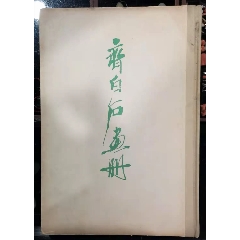 齊白石画册